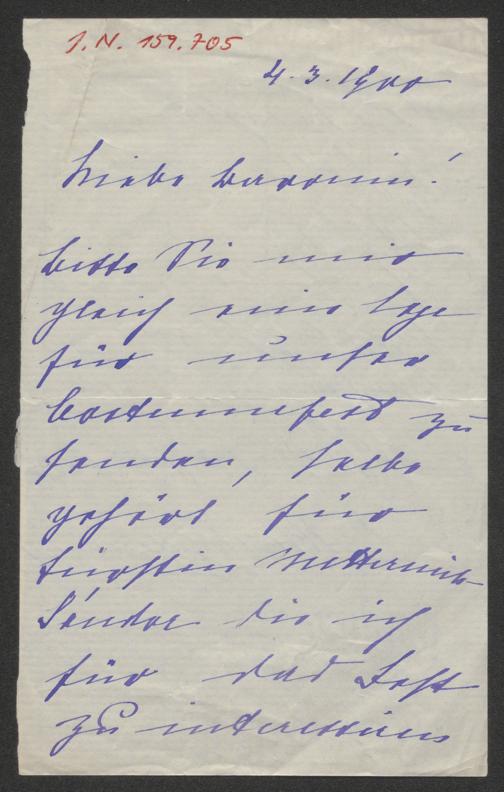 J.N. 159.705
4.3.1900
Liebe Baronin!
bitte Sie mir
gleich eine Loge
für unser
Costumefest zu
senden, selbe
gehört für
Fürstin Metternich-
Sándor die ich
für das Fest
zu interessiren